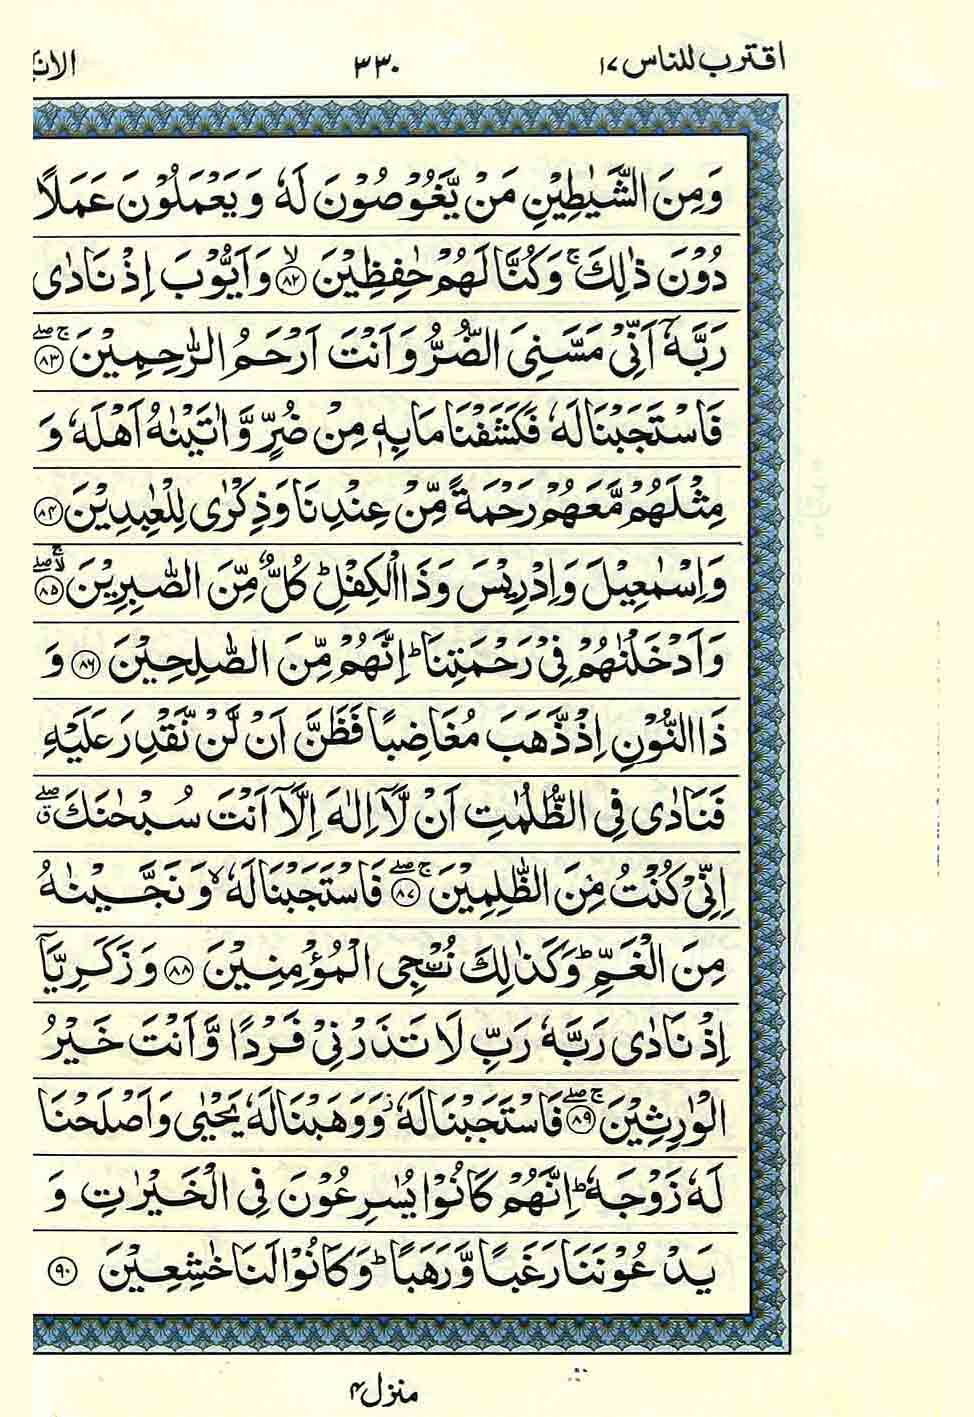 اقترب للناس ١٧
٣٣٠
وَمِنَ الشَّيٰطِيْنِ مَنْ يَّغُوْصُوْنَ لَهٗ وَ يَعْمَلُوْنَ عَمَلًا
دُوْنَ ذٰلِكَ ۚ وَكُنَّا لَهُمْ حٰفِظِيْنَ ۙ﴿٨٢﴾ وَاَيُّوْبَ اِذْ نَادٰى
رَبَّهٗۤ اَنِّيْ مَسَّنِيَ الضُّرُّ وَاَنْتَ اَرْحَمُ الرّٰحِمِيْنَ ۚۖ﴿٨٣﴾
فَاسْتَجَبْنَا لَهٗ فَكَشَفْنَا مَا بِهٖ مِنْ ضُرٍّ وَّاٰتَيْنٰهُ اَهْلَهٗ وَ
مِثْلَهُمْ مَّعَهُمْ رَحْمَةً مِّنْ عِنْدِنَا وَذِكْرٰى لِلْعٰبِدِيْنَ ﴿٨٤﴾
وَاِسْمٰعِيْلَ وَاِدْرِيْسَ وَذَا الْكِفْلِ ؕ كُلٌّ مِّنَ الصّٰبِرِيْنَ ۚۖ﴿٨٥﴾
وَاَدْخَلْنٰهُمْ فِيْ رَحْمَتِنَا ؕ اِنَّهُمْ مِّنَ الصّٰلِحِيْنَ ﴿٨٦﴾ وَ
ذَا النُّوْنِ اِذْ ذَّهَبَ مُغَاضِبًا فَظَنَّ اَنْ لَّنْ نَّقْدِرَ عَلَيْهِ
فَنَادٰى فِي الظُّلُمٰتِ اَنْ لَّاۤ اِلٰهَ اِلَّاۤ اَنْتَ سُبْحٰنَكَ ۖق
اِنِّيْ كُنْتُ مِنَ الظّٰلِمِيْنَ ۚۖ﴿٨٧﴾ فَاسْتَجَبْنَا لَهٗ ۙ وَنَجَّيْنٰهُ
مِنَ الْغَمِّ ؕ وَكَذٰلِكَ نُـنْۨجِي الْمُؤْمِنِيْنَ ﴿٨٨﴾ وَزَكَرِيَّاۤ
اِذْ نَادٰى رَبَّهٗ رَبِّ لَا تَذَرْنِيْ فَرْدًا وَّاَنْتَ خَيْرُ
الْوٰرِثِيْنَ ۚۖ﴿٨٩﴾ فَاسْتَجَبْنَا لَهٗ ز وَوَهَبْنَا لَهٗ يَحْيٰى وَاَصْلَحْنَا
لَهٗ زَوْجَهٗ ؕ اِنَّهُمْ كَانُوْا يُسٰرِعُوْنَ فِي الْخَيْرٰتِ وَ
يَدْعُوْنَنَا رَغَبًا وَّرَهَبًا ؕ وَكَانُوْا لَنَا خٰشِعِيْنَ ﴿٩٠﴾
منزل ٤